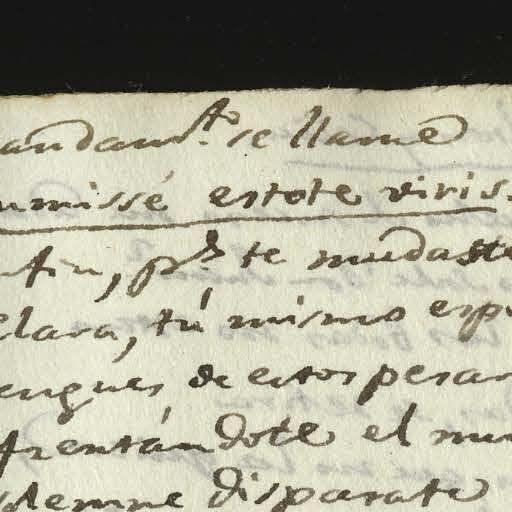 andam.to se llame
umissé estote viris.
nfin, ps te mudaste
clara, tú mismo espe
engues de estos pesar
frentándote el mu
solemne disparate